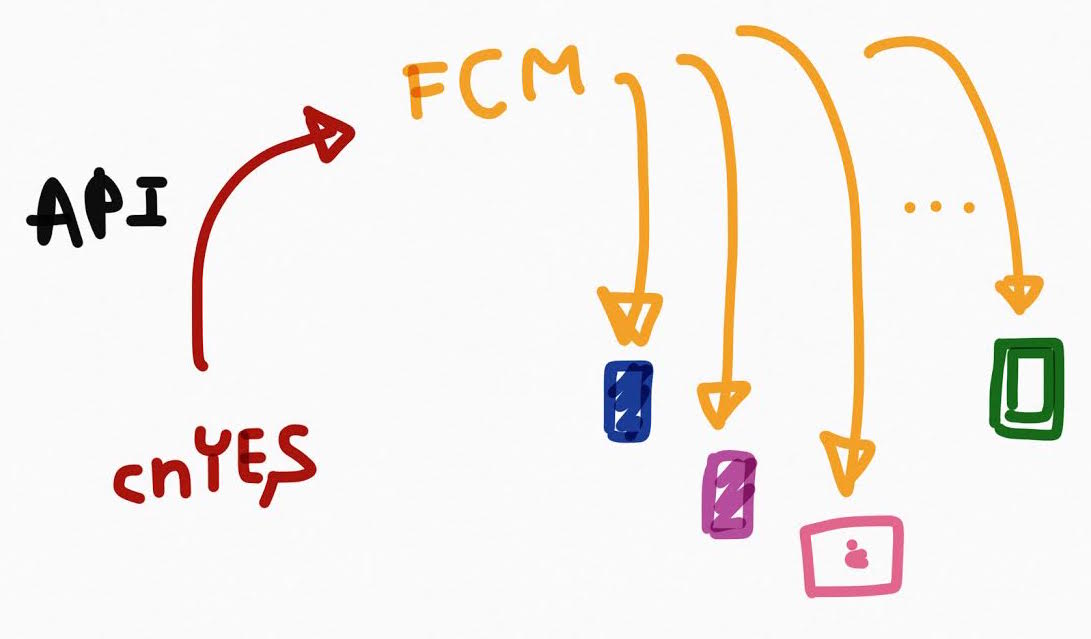 FCM
API
...
cnYES